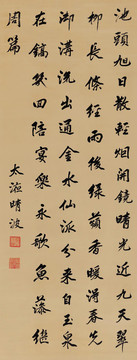 池頭旭日散輕烟開鏡晴光近
柳長條經雨後綠蘋香暖得春先
御溝流出通金水仙派分來自玉泉
在鎬幾回陪宴樂永歌魚藻繼
周篇
太液晴波